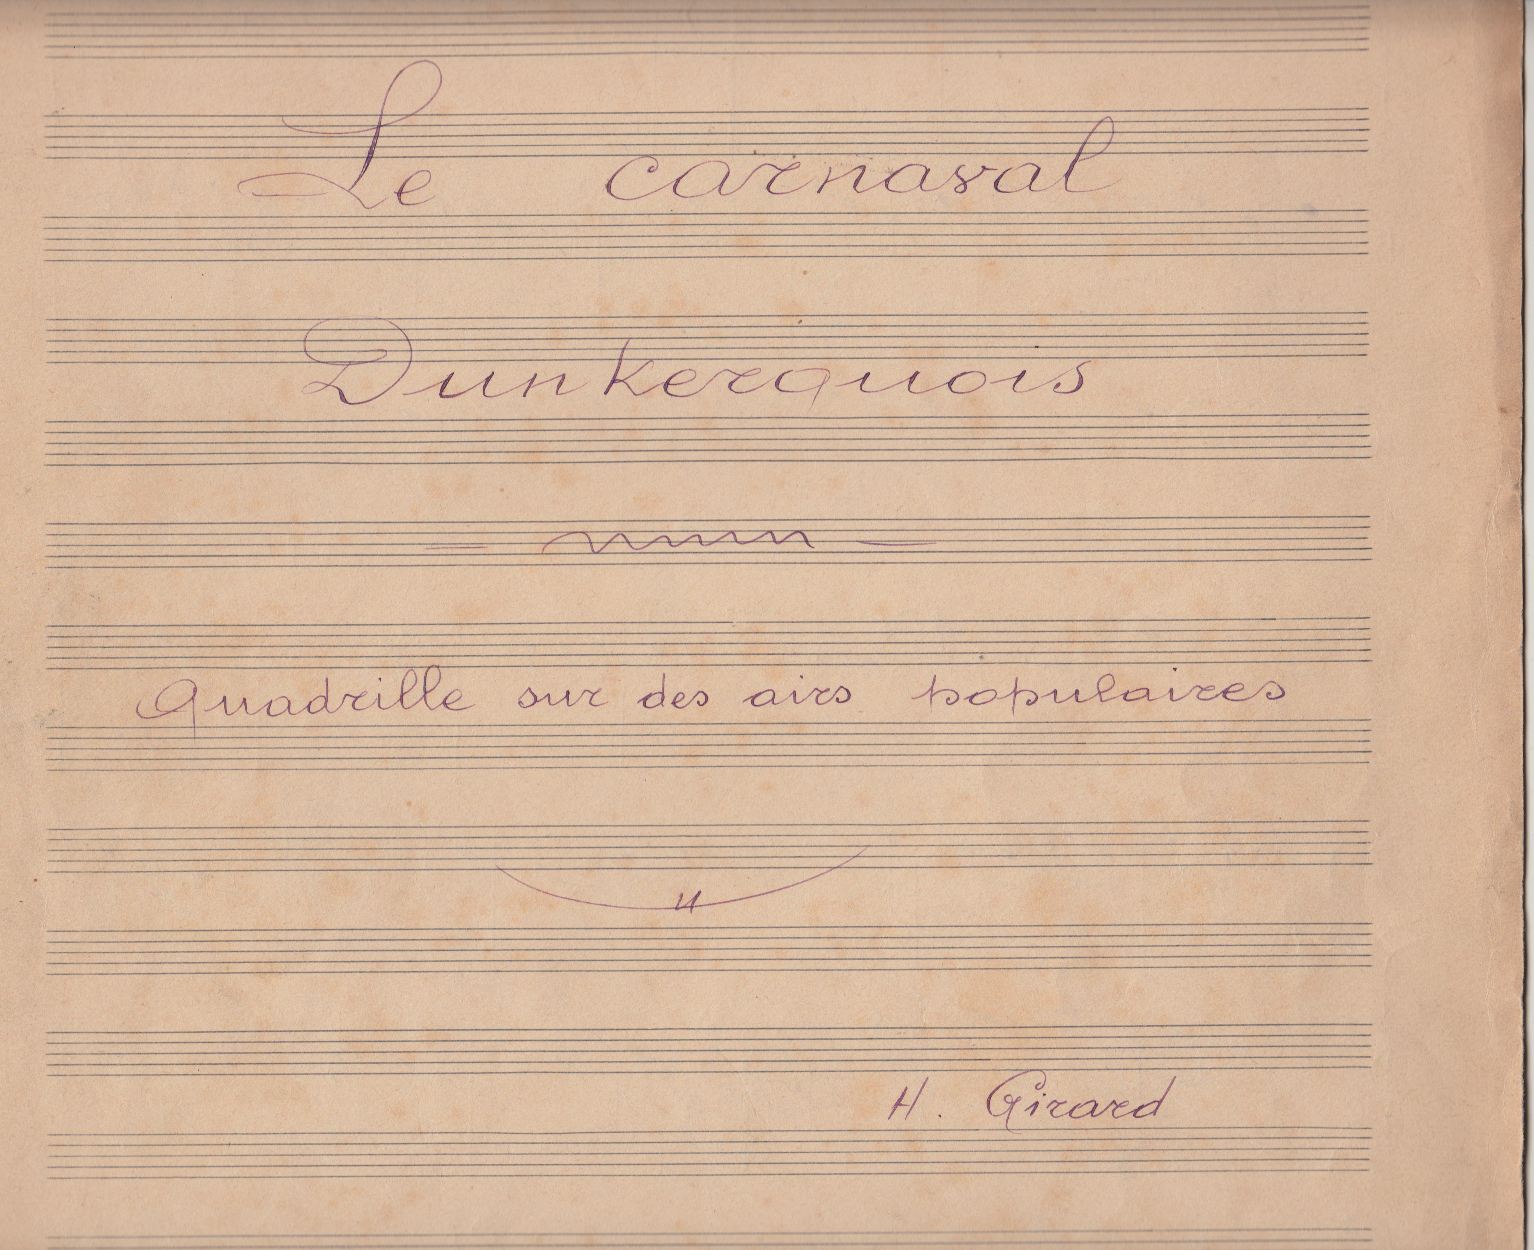 Le carnaval
Dunkerquois
Quadrille sur des airs populaires
H. Girard